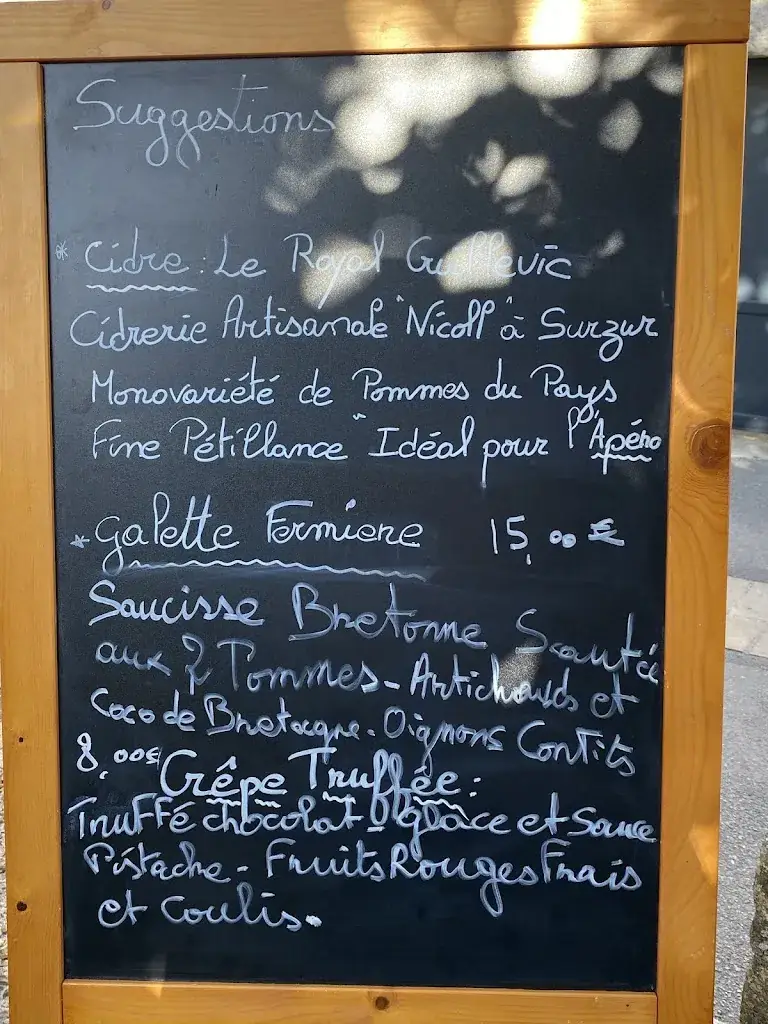 Suggestions
* Cidre : Le Royal Guillevic
Cidrerie Artisanale "Nicol" à Surzur
Monovariété de Pommes du Pays
Fine Pétillance " Idéal pour l'Apéro
* Galette Fermiere 15,00 €
Saucisse Bretonne Sautée
aux 2 Pommes - Artichauds et
Coco de Bretagne - Oignons Confits
8,00€ Crêpe Truffée :
Truffé chocolat - glace et Sauce
Pistache - Fruits Rouges Frais
et Coulis.